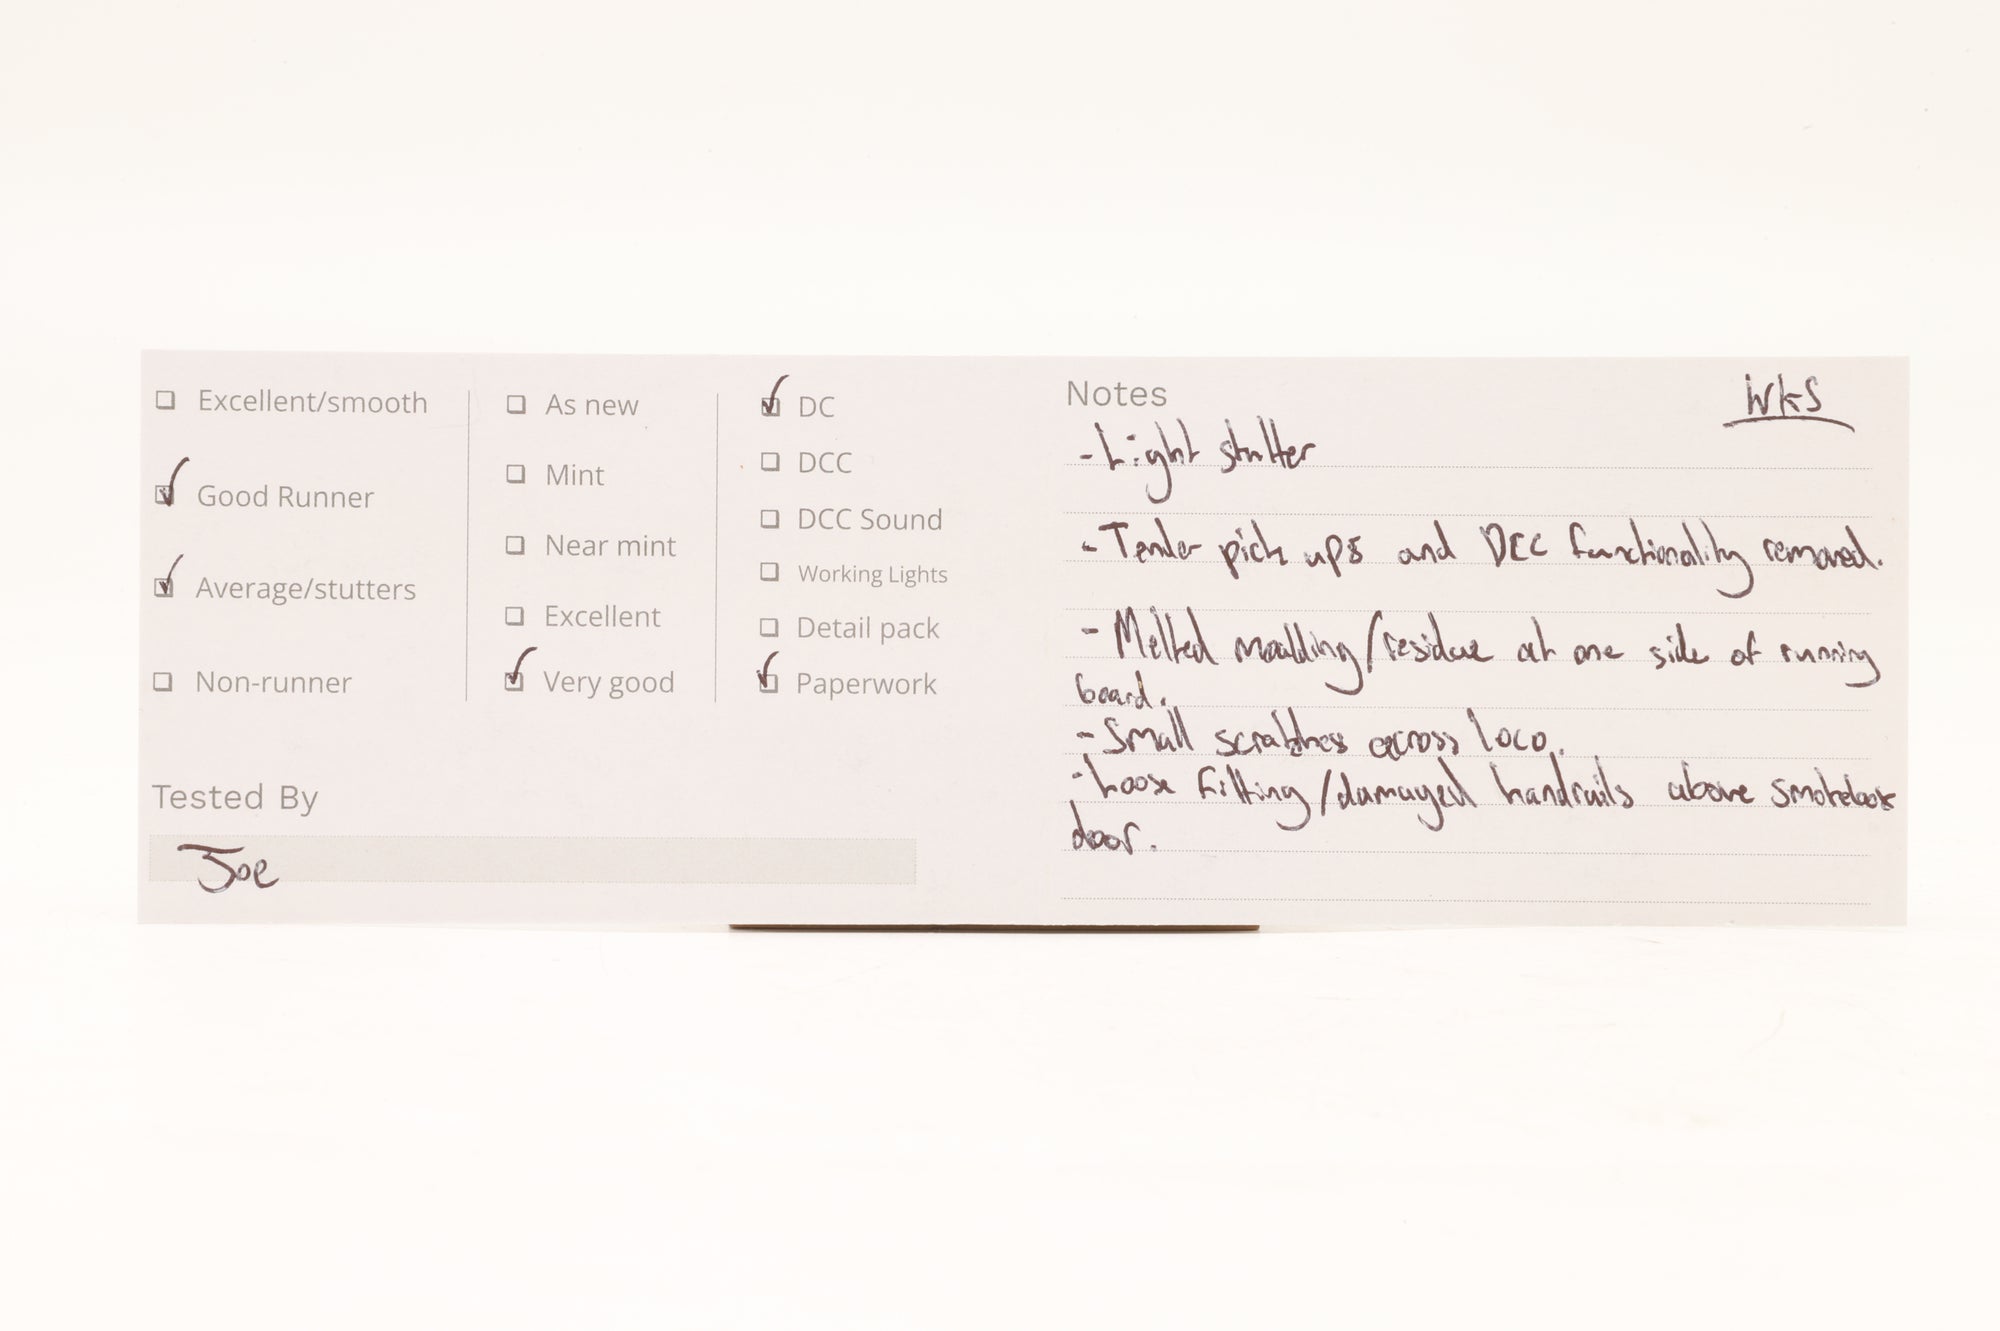 Excellent/smooth
Good Runner
Average/stutters
Non-runner
As new
Mint
Near mint
Excellent
Very good
DC
DCC
DCC Sound
Working Lights
Detail pack
Paperwork
Tested By
Joe
Notes
WKS
- Light stutter
- Tender pick ups and DCC functionality removed.
- Melted moulding/residue at one side of running
board.
- Small scratches across loco.
- Loose fitting/damaged handrails above smokebox
door.